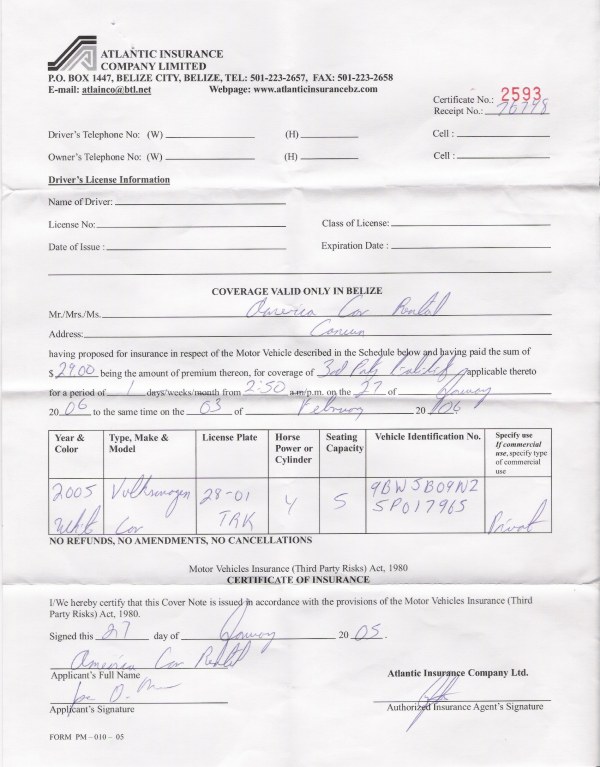 ATLANTIC INSURANCE
COMPANY LIMITED
P.O. BOX 1447, BELIZE CITY, BELIZE, TEL: 501-223-2657, FAX: 501-223-2658
E-mail: atlainco@btl.net Webpage: www.atlanticinsurancebz.com
Certificate No.: 2593
Receipt No.: 70798
Driver's Telephone No: (W) (H) Cell :
Owner's Telephone No: (W) (H) Cell :
Driver's License Information
Name of Driver:
License No: Class of License:
Date of Issue : Expiration Date :
COVERAGE VALID ONLY IN BELIZE
Mr./Mrs./Ms. America Car Rental
Address: Cancun
having proposed for insurance in respect of the Motor Vehicle described in the Schedule below and having paid the sum of
$ 29.00 being the amount of premium thereon, for coverage of 3rd Party applicable thereto
for a period of 1 days/weeks/month from 2:50 a.m/p.m. on the 27 of January
20 06 to the same time on the 03 of February 20 06
Year & Color Type, Make & Model License Plate Horse Power or Cylinder Seating Capacity Vehicle Identification No. Specify use If commercial use, specify type of commercial use
2005 Volkswagen 28-01 4 5 9BWSB09N2 5P017965
Car TRK Privat
NO REFUNDS, NO AMENDMENTS, NO CANCELLATIONS
Motor Vehicles Insurance (Third Party Risks) Act, 1980
CERTIFICATE OF INSURANCE
I/We hereby certify that this Cover Note is issued in accordance with the provisions of the Motor Vehicles Insurance (Third
Party Risks) Act, 1980.
Signed this 27 day of January 20 05.
America Car Rental
Applicant's Full Name Atlantic Insurance Company Ltd.
Applicant's Signature Authorized Insurance Agent's Signature
FORM PM – 010 – 05